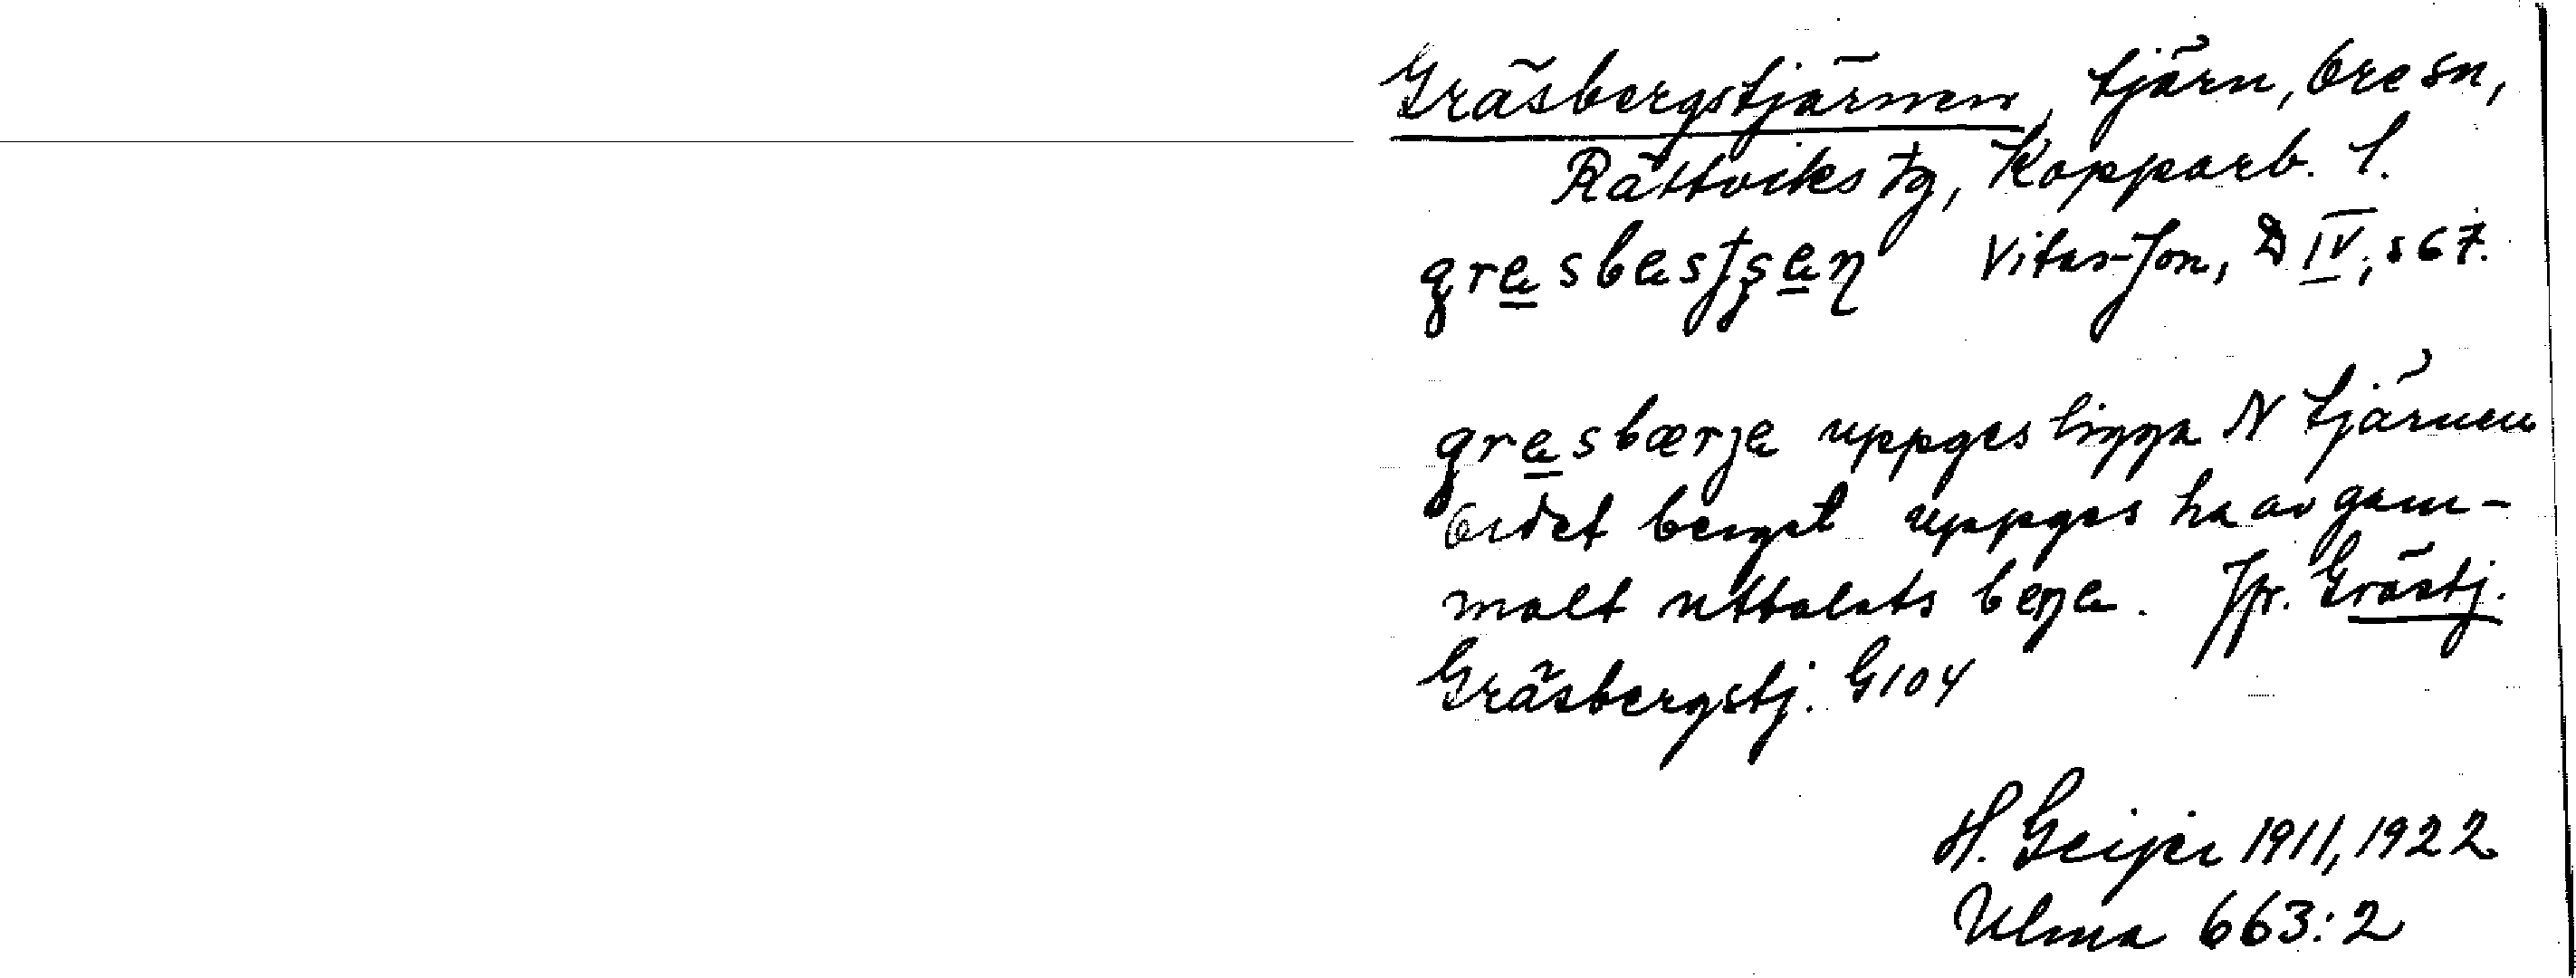 Gräsbergstjärnen, tjärn, Ore sn,
Rättviks tg, Kopparb. l.
Vitar-Jon, D IV, s 67.
uppges ligga N tjärnen
Ordet berget uppges ha av gam-
malt uttalats Jfr. Grästj.
Gräsbergstj. G104
H. Geijer 1911, 1922
Ulma 663:2